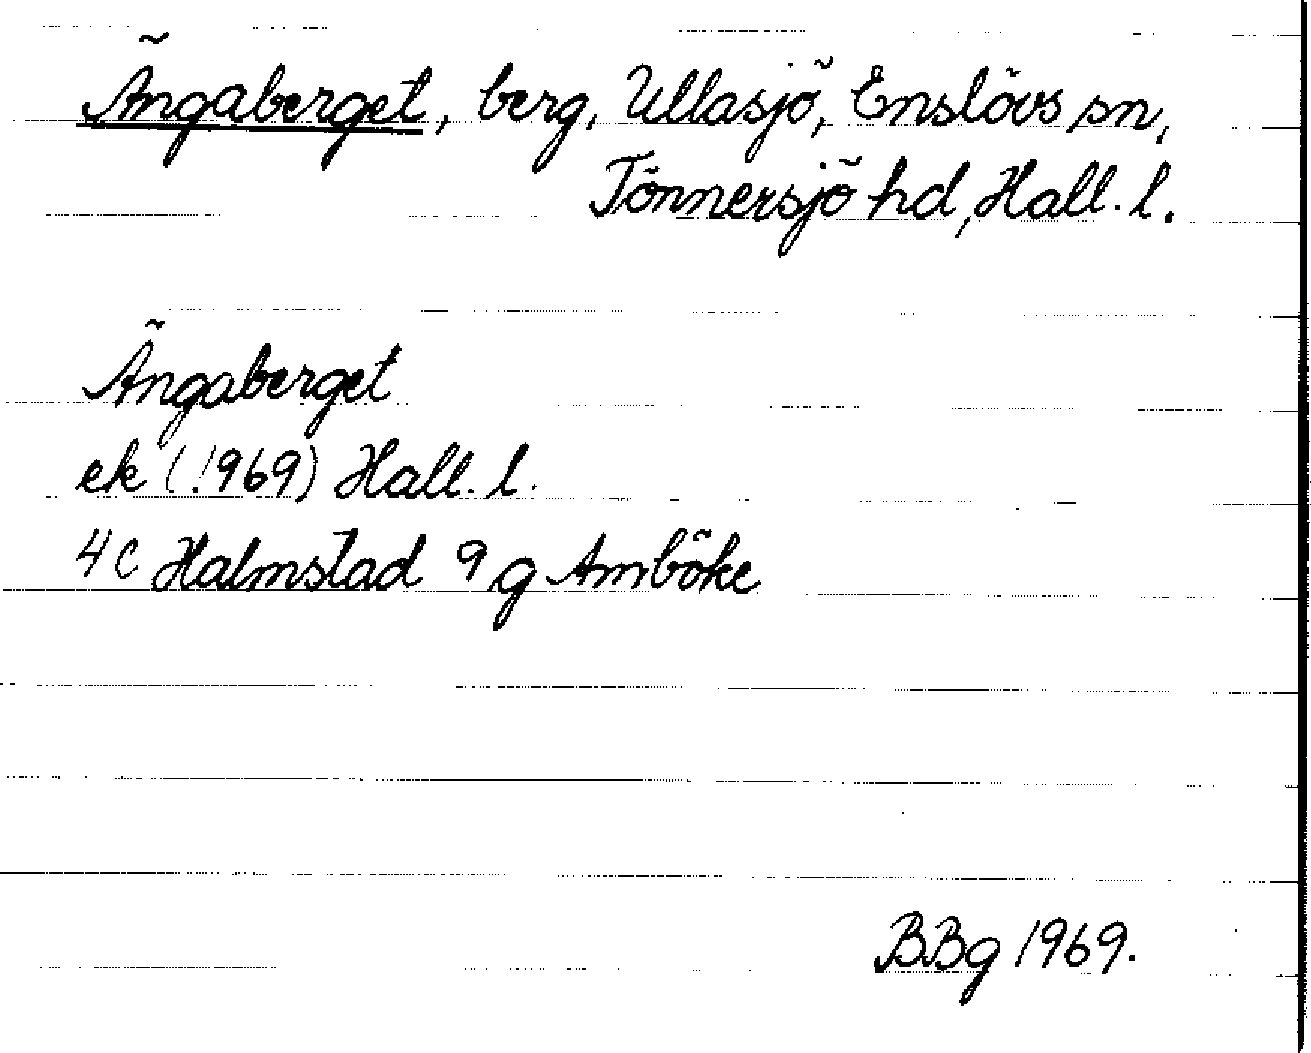 Ängaberget, berg, Ullasjö, Enslövs sn,
Tönnersjö hd, Hall. l.
Ängaberget
ek (1969) Hall. l.
4 C Halmstad 9 g Amböke
BBg 1969.